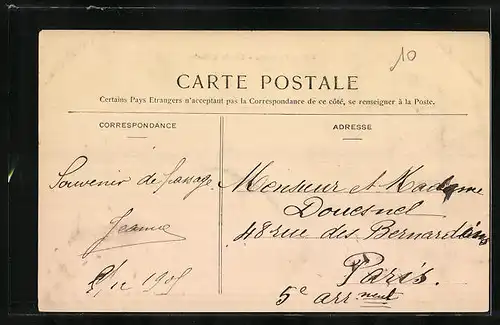 10
CARTE POSTALE
Certains Pays Etrangers n'acceptant pas la Correspondance de ce côté, se renseigner à la Poste.
CORRESPONDANCE
Souvenir de passage
Jeanne
2/12 1905
ADRESSE
Monsieur et Madame
Douesnel
48 rue des Bernardins
Paris.
5e arrment